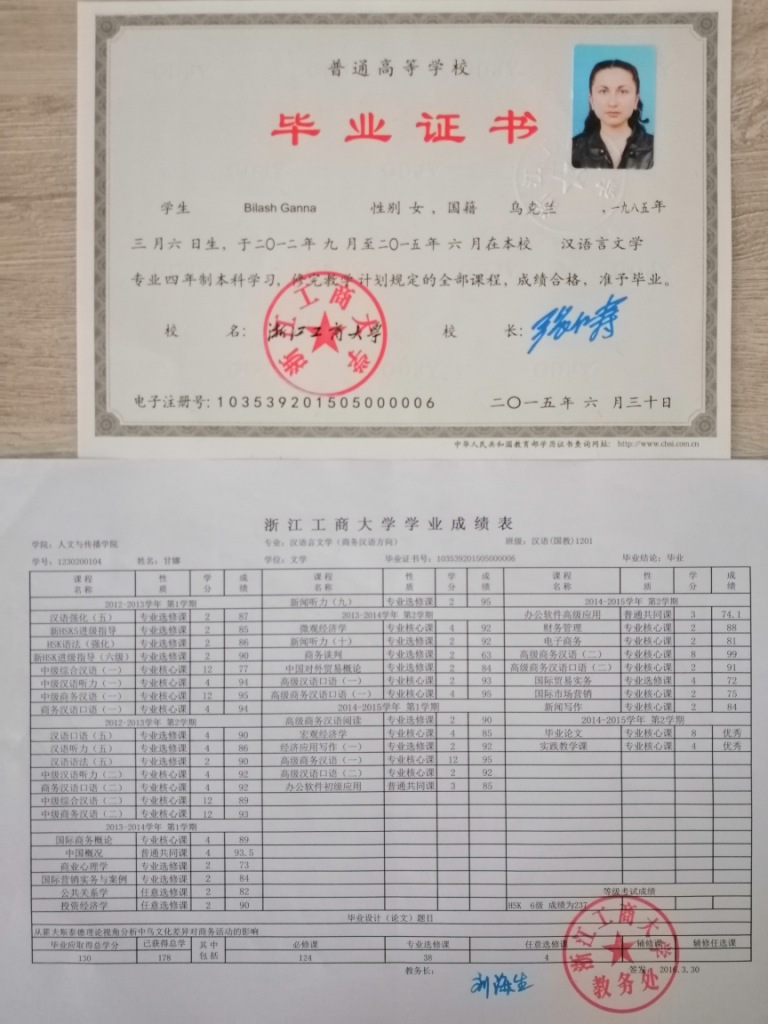 普通高等学校
毕业证书
学生 Bilash Ganna 性别 女 、国籍 乌克兰 、一九八五年
三月六日生，于二〇一二年 九 月至二〇一五年 六 月在本校 汉语言文学
专业四年制本科学习，修完教学计划规定的全部课程，成绩合格，准予毕业。
校 名： 浙江工商大学 校 长：
浙江工商大学
电子注册号：103539201505000006 二〇一五年 六 月三十日
中华人民共和国教育部学历证书查询网址： http://www.chsi.com.cn
浙江工商大学学业成绩表
学院：人文与传播学院 专业：汉语言文学（商务汉语方向） 班级：汉语(国教)1201
学号：1230200104 姓名：甘娜 学位：文学 毕业证书号：103539201505000006 毕业结论：毕业
课程名称 性质 学分 成绩 课程名称 性质 学分 成绩 课程名称 性质 学分 成绩
2012-2013学年 第1学期
汉语强化（五） 专业选修课 2 87
新HSK5进级指导 专业选修课 2 85
HSK语法（强化） 专业选修课 2 86
新HSK进级指导（六级） 专业选修课 2 90
中级综合汉语（一） 专业核心课 12 77
中级汉语听力（一） 专业核心课 4 94
中级商务汉语（一） 专业核心课 12 95
商务汉语口语（一） 专业核心课 4 94
2012-2013学年 第2学期
汉语口语（五） 专业选修课 4 90
汉语听力（五） 专业选修课 4 86
汉语语法（五） 专业选修课 2 90
中级汉语听力（二） 专业核心课 4 92
商务汉语口语（二） 专业核心课 4 92
中级综合汉语（二） 专业核心课 12 89
中级商务汉语（二） 专业核心课 12 93
2013-2014学年 第1学期
国际商务概论 专业核心课 4 89
中国概况 普通共同课 4 93.5
商业心理学 专业选修课 2 73
国际营销实务与案例 专业选修课 2 84
公共关系学 任意选修课 2 82
投资经济学 任意选修课 2 90
新闻听力（九） 专业选修课 2 95
2013-2014学年 第2学期
微观经济学 专业核心课 4 92
新闻听力（十） 专业选修课 2 92
商务谈判 专业选修课 2 63
中国对外贸易概论 专业核心课 2 84
高级汉语口语（一） 专业核心课 2 93
高级商务汉语口语（一） 专业核心课 4 95
2014-2015学年 第1学期
高级商务汉语阅读 专业选修课 2 90
宏观经济学 专业核心课 4 85
经济应用写作（一） 专业选修课 2 92
高级商务汉语（一） 专业核心课 12 95
高级汉语口语（二） 专业核心课 2 92
办公软件初级应用 普通共同课 3 85
2014-2015学年 第2学期
办公软件高级应用 普通共同课 3 74.1
财务管理 专业核心课 2 88
电子商务 专业核心课 2 81
高级商务汉语（二） 专业核心课 8 99
高级商务汉语口语（二） 专业核心课 2 91
国际贸易实务 专业选修课 4 72
国际市场营销 专业核心课 2 75
新闻写作 专业核心课 2 84
2014-2015学年 第2学期
毕业论文 专业核心课 8 优秀
实践教学课 专业核心课 4 优秀
等级考试成绩
HSK 6级 成绩为237
毕业设计（论文）题目
从霍夫斯泰德理论视角分析中乌文化差异对商务活动的影响
毕业应取得总学分 已获得总学 其中包括 必修课 专业选修课 任意选修课 辅修课 辅修任选课
130 178 124 38 4
教务长： 刘海生 签发： 2016.3.30
浙江工商大学
教务处